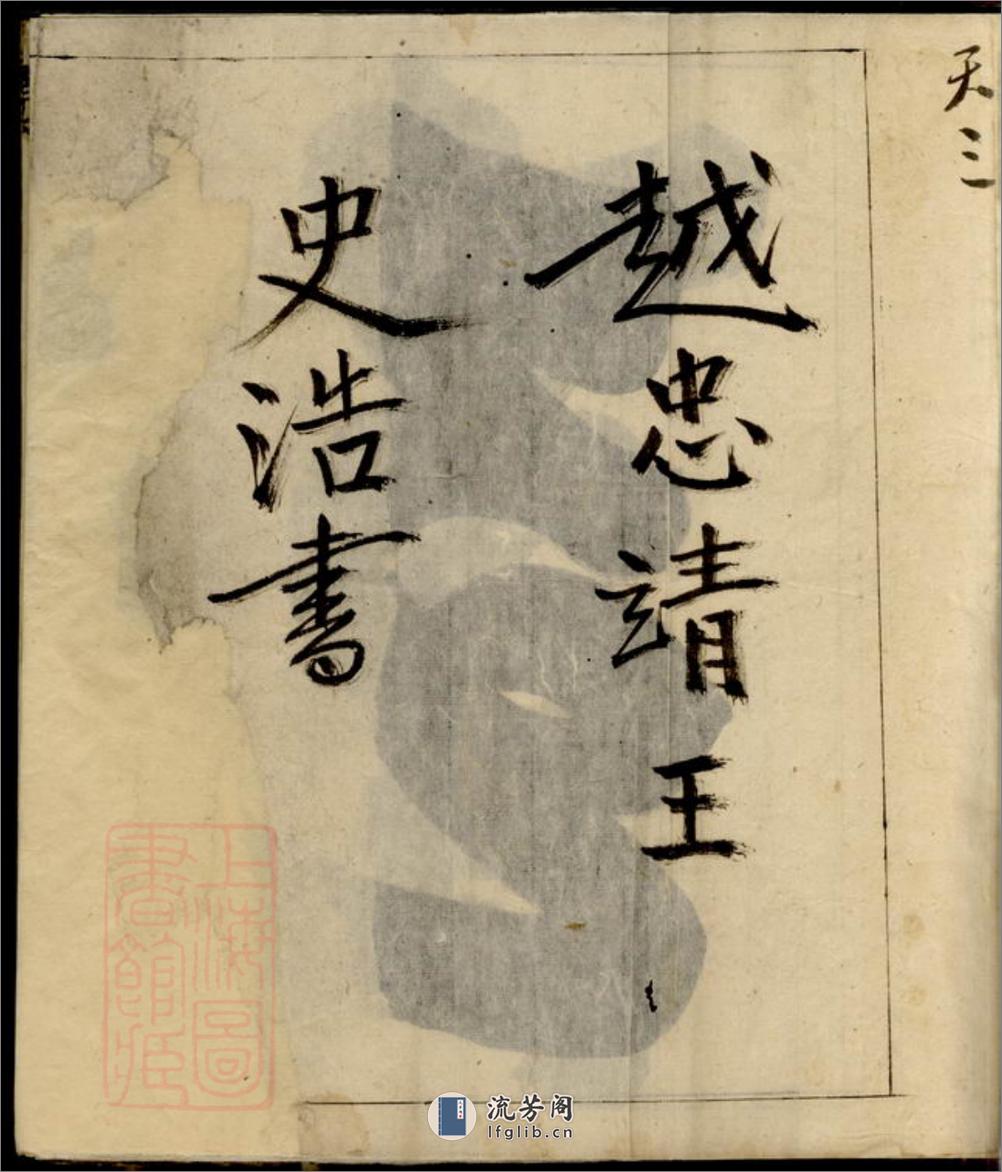 天三
越忠靖王
史浩書
上海圖
書館藏
流芳阁
lfglib.cn